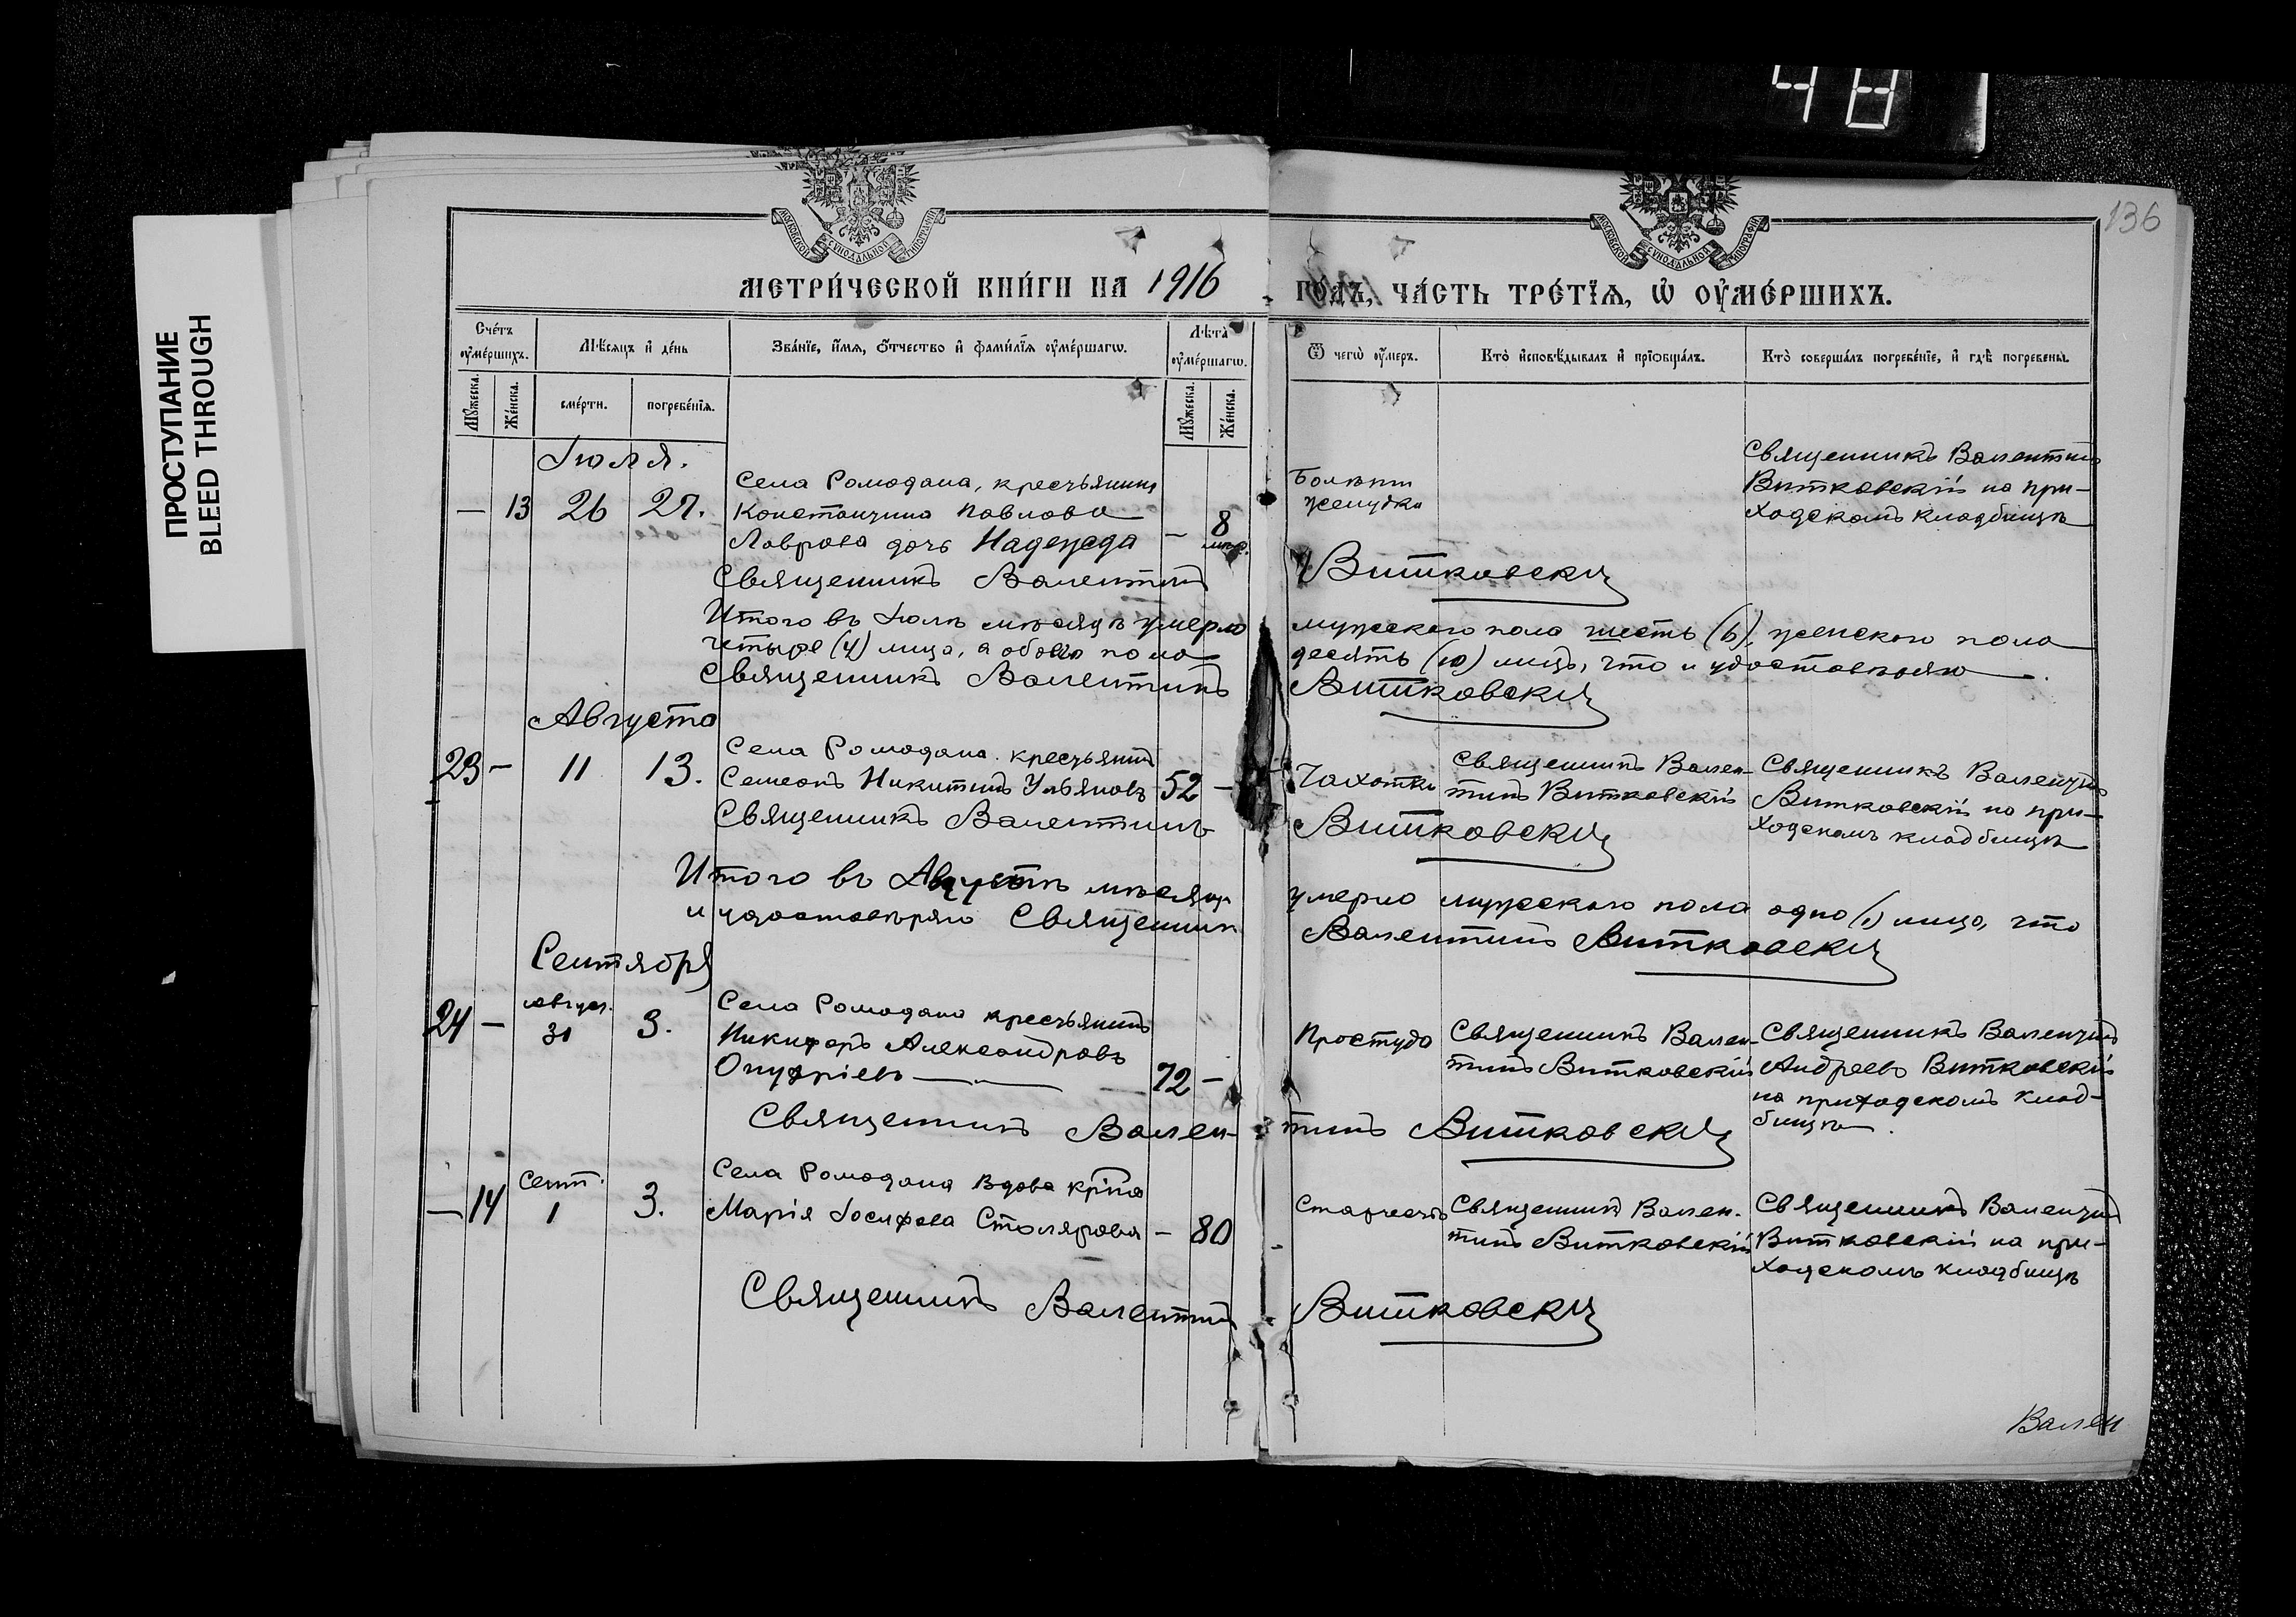 48
136
ПРОСТУПАНИЕ
BLEED THROUGH
МОСКОВСКОЙ СѴНОДАЛЬНОЙ ТИПОГРАФІИ
МОСКОВСКОЙ СѴНОДАЛЬНОЙ ТИПОГРАФІИ
МЕТРИ́ЧЕСКОЙ КНИ́ГИ НА 1916 ГО́ДЪ, ЧА́СТЬ ТРЕ́ТІѦ, Ѡ҆ ОУ҆МЕ́РШИХЪ.
Сче́тъ оу҆ме́ршихъ.
Мꙋ́жеска.
Же́нска.
Мѣ́сѧцъ и҆ де́нь
сме́рти.
погребе́нїѧ.
Зва́нїе, и҆́мѧ, ѻ҆́тчество и҆ фами́лїѧ оу҆ме́ршагѡ.
Лѣ́та оу҆ме́ршагѡ.
Мꙋ́жеска.
Же́нска.
Ѿ чегѡ̀ оу҆́меръ.
Кто̀ и҆сповѣ́дывалъ и҆ прїѡбща́лъ.
Кто̀ соверша́лъ погребе́нїе, и҆ гдѣ̀ погребены̀.
Іюля.
— 13 26 27.
Села Ромодана, крестьянина
Константина Павлова
Лаврова дочь Надежда
— 8 мѣс.
Болѣзни
желудка
Священникъ Валентинъ
Витковскій на при-
ходскомъ кладбищѣ
Священникъ Валентинъ Витковскій
Итого въ Іюлѣ мѣсяцѣ умерло мужского пола шесть (6), женского пола
четыре (4) лица, а обоего пола десять (10) лицъ, что и удостовѣряю
Священникъ Валентинъ Витковскій
Августа
23 — 11 13.
Села Ромодана крестьянинъ
Семеонъ Никитинъ Ульяновъ
52 —
Чахотки
Священникъ Вален-
тинъ Витковскій
Священникъ Валентинъ
Витковскій на при-
ходскомъ кладбищѣ
Священникъ Валентинъ Витковскій
Итого въ Августѣ мѣсяцѣ умерло мужского пола одно (1) лицо, что
и удостовѣряю Священникъ Валентинъ Витковскій
Сентября
24 — август. 31 3.
Села Ромодана крестьянинъ
Никифоръ Александровъ
Онуфріевъ
72 —
Простуда
Священникъ Вален-
тинъ Витковскій
Священникъ Валентинъ
Андреевъ Витковскій
на приходскомъ клад-
бищѣ.
Священникъ Вален- тинъ Витковскій
— 14 Сент. 1 3.
Села Ромодана вдова кр-на
Марія Іосифова Столярова
— 80
Священникъ Вален-
тинъ Витковскій
Священникъ Валентинъ
Витковскій на при-
ходскомъ кладбищѣ
Священникъ Валентинъ Витковскій
Вален